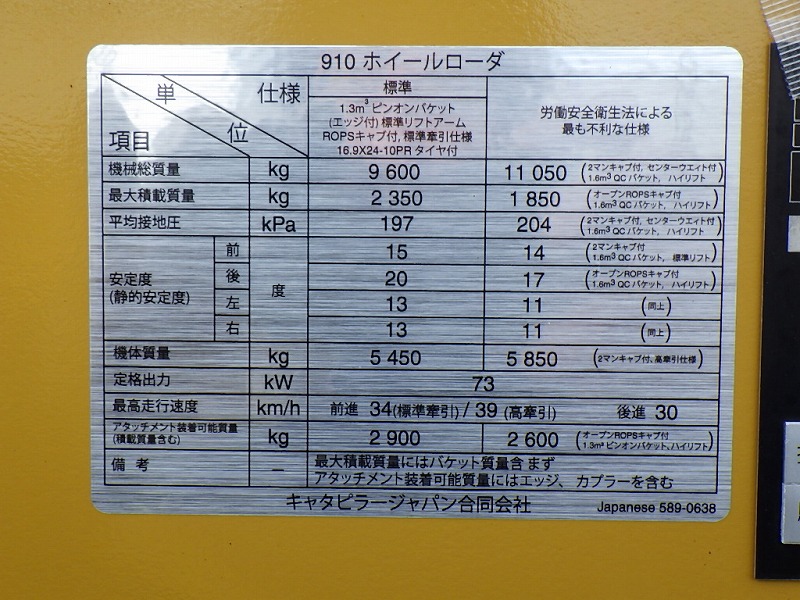 910 ホイールローダ
単位 仕様 項目
標準
1.3m³ ピンオンバケット
(エッジ付) 標準リフトアーム
ROPSキャブ付, 標準牽引仕様
16.9X24-10PR タイヤ付
労働安全衛生法による
最も不利な仕様
機械総質量 kg 9 600 11 050 (2マンキャブ付, センターウエイト付 1.6m³ QC バケット, ハイリフト)
最大積載質量 kg 2 350 1 850 (オープンROPSキャブ付 1.6m³ QC バケット, ハイリフト)
平均接地圧 kPa 197 204 (2マンキャブ付, センターウエイト付 1.6m³ QC バケット, ハイリフト)
安定度
(静的安定度)
度
前 15 14 (2マンキャブ付 1.6m³ QC バケット, 標準リフト)
後 20 17 (オープンROPSキャブ付 1.6m³ QC バケット, ハイリフト)
左 13 11 (同上)
右 13 11 (同上)
機体質量 kg 5 450 5 850 (2マンキャブ付、高牽引仕様)
定格出力 kW 73
最高走行速度 km/h 前進 34(標準牽引) / 39 (高牽引) 後進 30
アタッチメント装着可能質量
(積載質量含む) kg 2 900 2 600 (オープンROPSキャブ付 1.3m³ ピンオンバケット, ハイリフト)
備考 — 最大積載質量にはバケット質量含まず
アタッチメント装着可能質量にはエッジ、カプラーを含む
キャタピラージャパン合同会社 Japanese 589-0638